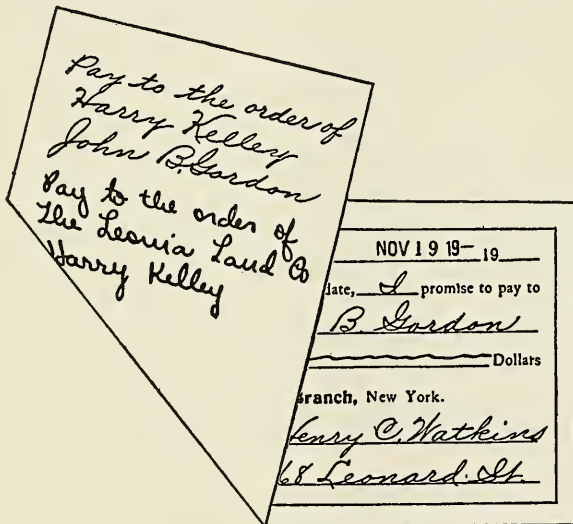 Pay to the order of
Harry Kelley
John B. Gordon
Pay to the order of
The Leonia Land Co
Harry Kelley
NOV 19 19— 19
date, I promise to pay to
B. Gordon
Dollars
Branch, New York.
Henry C. Watkins
68 Leonard St.